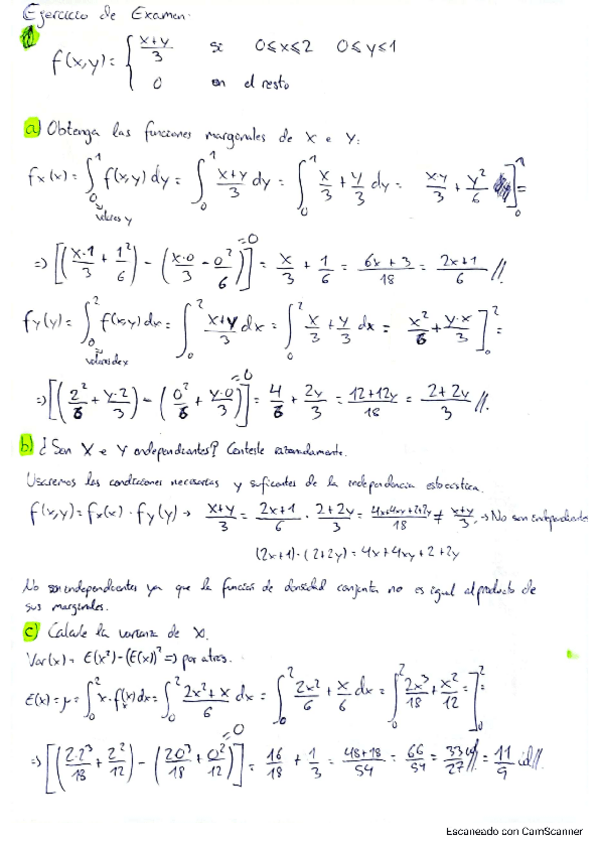 Ejercicio de Examen.
f(x,y) = { x+y/3 si 0≤x≤2 0≤y≤1
0 en el resto
a) Obtenga las funciones marginales de X e Y:
fx(x) = ∫₀¹ f(x,y) dy = ∫₀¹ x+y/3 dy = ∫₀¹ x/3 + y/3 dy = x·y/3 + y²/6 ]₀¹ =
valores y
=> [(x·1/3 + 1²/6) - (x·0/3 - 0²/6)] = x/3 + 1/6 = 6x+3/18 = 2x+1/6 //.
=0
fy(y) = ∫₀² f(x,y) dx = ∫₀² x+y/3 dx = ∫₀² x/3 + y/3 dx = x²/6 + y·x/3 ]₀² =
valores de x
=> [(2²/6 + y·2/3) - (0²/6 + y·0/3)] = 4/6 + 2y/3 = 12+12y/18 = 2+2y/3 //.
=0
b) ¿Son X e Y independientes? Conteste razonadamente.
Usaremos las condiciones necesarias y suficientes de la independencia estocástica.
f(x,y) = fx(x) · fy(y) → x+y/3 = 2x+1/6 · 2+2y/3 = 4x+4xy+2+2y/18 ≠ x+y/3 → No son independientes
(2x+1)·(2+2y) = 4x+4xy+2+2y
No son independientes ya que la función de densidad conjunta no es igual al producto de
sus marginales.
c) Calcule la varianza de X.
Var(x) = E(x²)-(E(x))² => por atrás.
E(x) = μ = ∫₀² x·fx(x) dx = ∫₀² 2x²+x/6 dx = ∫₀² 2x²/6 + x/6 dx = ∫₀² 2x³/18 + x²/12 = ]₀² =
=> [(2·2³/18 + 2²/12) - (2·0³/18 + 0²/12)] = 16/18 + 1/3 = 48+18/54 = 66/54 = 33/27 // = 11/9 //.
=0
Escaneado con CamScanner